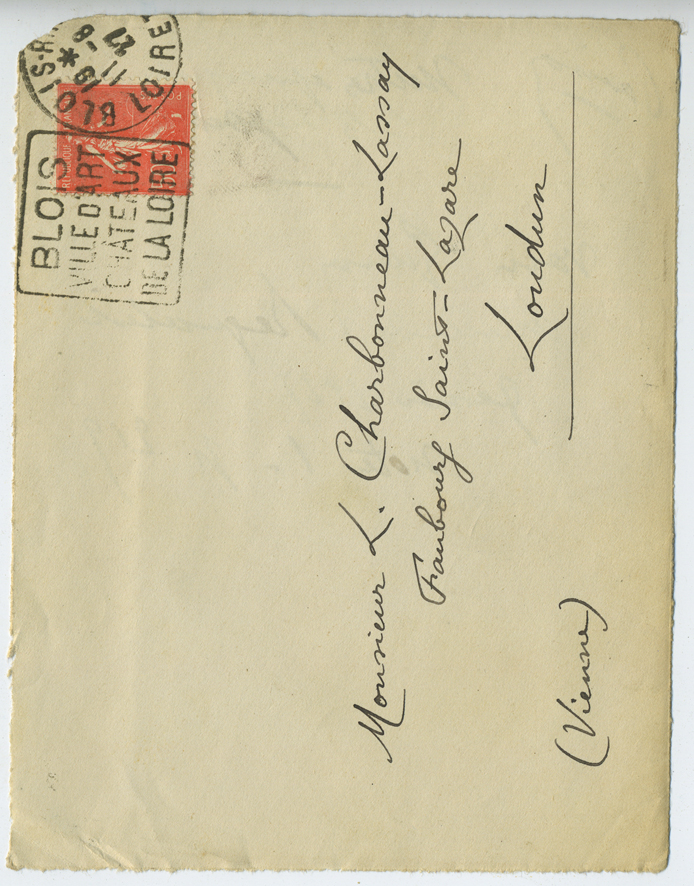 Monsieur L. Charbonneau-Lassay
Faubourg Saint-Lazare
Loudun
(Vienne)
BLOIS
VILLE D'ART
CHÂTEAUX
DE LA LOIRE
BLOIS-R
LOIR-ET
11
19